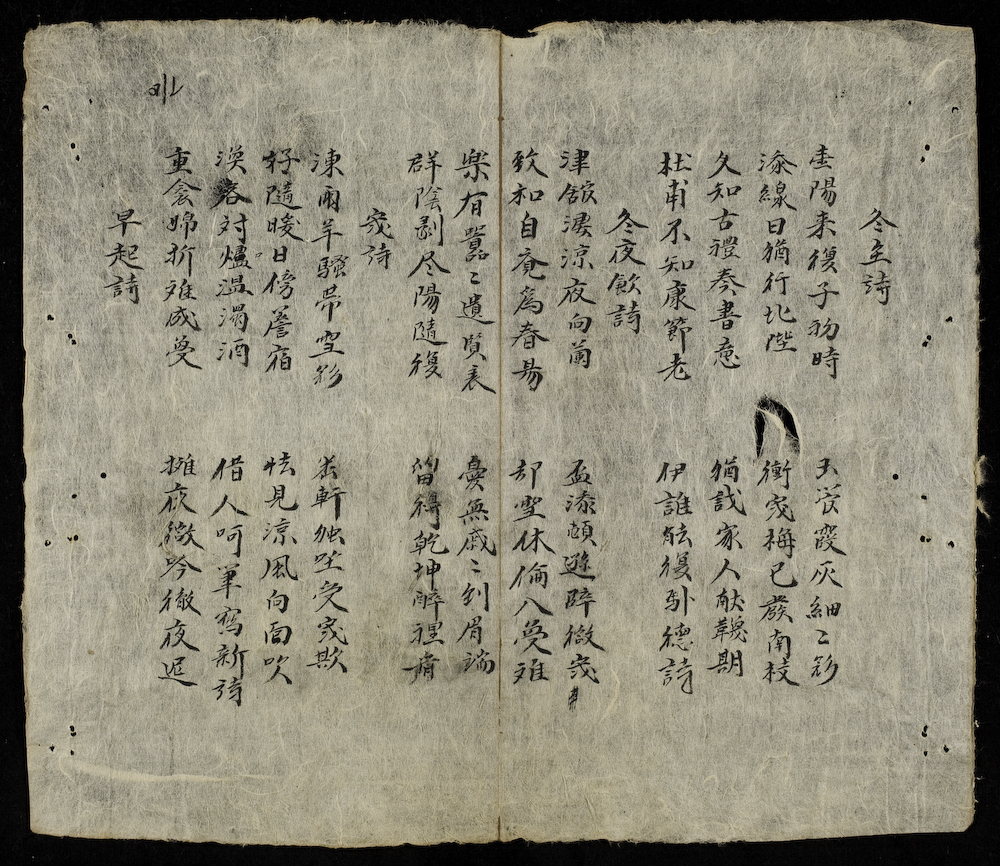 冬至詩
壹陽来復子初時 管霞灰細〻移
添線日猶行北陸 衝寒梅已發南枝
久知古禮奏書意 猶識家人献襪期
杜甫不知康節老 伊誰能復馭德詩
冬夜飲詩
津舘凉夜向蘭 盃添頻遊醉微寒
致和自竟為春易 却聖休倫入夢难
樂有囂〻遺賢表 憂無戚〻到眉端
群陰剥尽陽隨復 留得乾坤醉裡看
寒詩
凍雨羊騷帶雪 軒独坐受寒欺
好隨暖日傍簷宿 怯見凉風向面吹
客対爐温濁酒 借人呵筆寫新詩
重衾婦折难成夢 擁夜微吟徹夜遅
早起詩